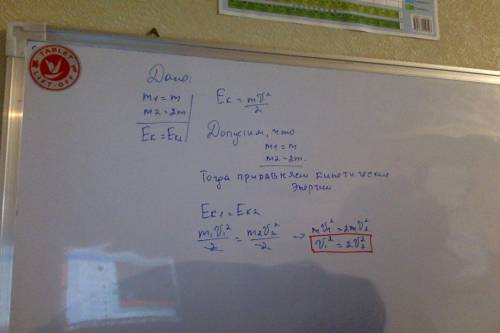 TABLET
LIFT-OFF
Дано:
m1 = m
m2 = 2m
Eк = Eк2
Eк = mv²/2
Допустим, что
m1 = m
m2 = 2m.
Тогда приравняем кинетические
энергии
Eк1 = Eк2
m1v1²/2 = m2v2²/2 → mv1² = 2mv2²
v1² = 2v2²